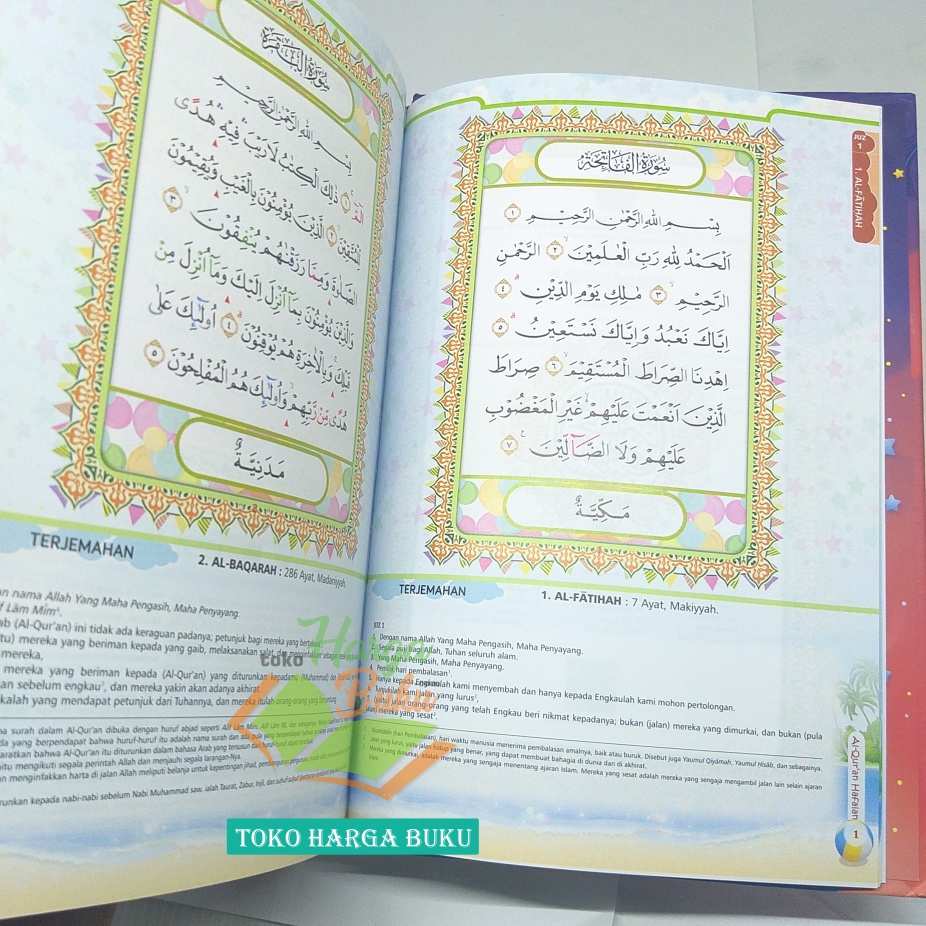 JUZ
1
1. AL-FĀTIḤAH
سُوْرَةُ الْفَاتِحَةِ
بِسْمِ اللّٰهِ الرَّحْمٰنِ الرَّحِيْمِ ١
اَلْحَمْدُ لِلّٰهِ رَبِّ الْعٰلَمِيْنَۙ ٢ الرَّحْمٰنِ
الرَّحِيْمِۙ ٣ مٰلِكِ يَوْمِ الدِّيْنِۗ ٤
اِيَّاكَ نَعْبُدُ وَاِيَّاكَ نَسْتَعِيْنُۗ ٥
اِهْدِنَا الصِّرَاطَ الْمُسْتَقِيْمَۙ ٦ صِرَاطَ
الَّذِيْنَ اَنْعَمْتَ عَلَيْهِمْ ەۙ غَيْرِ الْمَغْضُوْبِ
عَلَيْهِمْ وَلَا الضَّاۤلِّيْنَ ࣖ ٧
مَكِّيَّةٌ
TERJEMAHAN
1. AL-FĀTIḤAH : 7 Ayat, Makiyyah.
JUZ 1
1. Dengan nama Allah Yang Maha Pengasih, Maha Penyayang.
2. Segala puji bagi Allah, Tuhan seluruh alam.
3. Yang Maha Pengasih, Maha Penyayang.
4. Pemilik hari pembalasan¹.
5. Hanya kepada Engkaulah kami menyembah dan hanya kepada Engkaulah kami mohon pertolongan.
6. Tunjukilah kami jalan yang lurus²
(yaitu) jalan orang-orang yang telah Engkau beri nikmat kepadanya; bukan (jalan) mereka yang dimurkai, dan bukan (pula
jalan) mereka yang sesat³.
(hari Pembalasan), hari waktu manusia menerima pembalasan amalnya, baik atau buruk. Disebut juga Yaumul Qiyāmah, Yaumul Ḥisāb, dan sebagainya.
Jalan yang lurus, yaitu jalan hidup yang benar, yang dapat membuat bahagia di dunia dan di akhirat.
Mereka yang dimurkai, adalah mereka yang sengaja menentang ajaran Islam. Mereka yang sesat adalah mereka yang sengaja mengambil jalan lain selain ajaran
Islam.
Al-Qur'an Hafalan
1
سُوْرَةُ الْبَقَرَةِ
بِسْمِ اللّٰهِ الرَّحْمٰنِ الرَّحِيْمِ
الۤمّۤ ۚ ١ ذٰلِكَ الْكِتٰبُ لَا رَيْبَ ۛ فِيْهِ ۛ هُدًى
لِّلْمُتَّقِيْنَۙ ٢ الَّذِيْنَ يُؤْمِنُوْنَ بِالْغَيْبِ وَيُقِيْمُوْنَ
الصَّلٰوةَ وَمِمَّا رَزَقْنٰهُمْ يُنْفِقُوْنَۙ ٣
وَالَّذِيْنَ يُؤْمِنُوْنَ بِمَآ اُنْزِلَ اِلَيْكَ وَمَآ اُنْزِلَ مِنْ
قَبْلِكَ ۚ وَبِالْاٰخِرَةِ هُمْ يُوْقِنُوْنَۗ ٤ اُولٰۤىِٕكَ عَلٰى
هُدًى مِّنْ رَّبِّهِمْ ۙ وَاُولٰۤىِٕكَ هُمُ الْمُفْلِحُوْنَ ٥
مَدَنِيَّةٌ
TERJEMAHAN
2. AL-BAQARAH : 286 Ayat, Madaniyyah.
nama Allah Yang Maha Pengasih, Maha Penyayang.
Lām Mīm
(Al-Qur'an) ini tidak ada keraguan padanya; petunjuk bagi mereka yang bertakwa
mereka yang beriman kepada yang gaib, melaksanakan salat, dan menginfakkan sebagian
mereka,
mereka yang beriman kepada (Al-Qur'an) yang diturunkan kepadamu (Muhammad) dan
sebelum engkau, dan mereka yakin akan adanya akhirat
yang mendapat petunjuk dari Tuhannya, dan mereka itulah orang-orang yang beruntung
surah dalam Al-Qur'an dibuka dengan huruf abjad seperti Alif Lām Mīm, Alif Lām Rā, dan sebagainya.
yang berpendapat bahwa huruf-huruf itu adalah nama surah dan
bahwa Al-Qur'an itu diturunkan dalam bahasa Arab yang tersusun dari
mengikuti segala perintah Allah dan menjauhi segala larangan-Nya.
menginfakkan harta di jalan Allah meliputi belanja untuk kepentingan jihad,
kepada nabi-nabi sebelum Nabi Muhammad saw. ialah Taurat, Zabur, Injil, dan
toko
Harga
Buku
TOKO HARGA BUKU